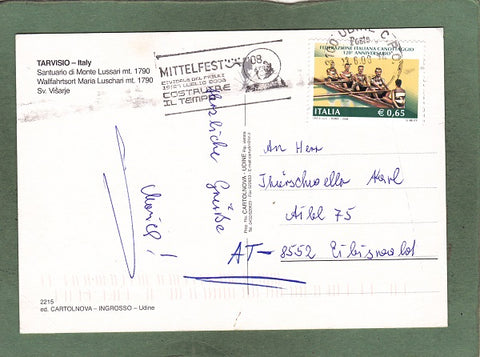 TARVISIO – Italy
Santuario di Monte Lussari mt. 1790
Wallfahrtsort Maria Luschari mt. 1790
Sv. Višarje
MITTELFEST 08
CIVIDALE DEL FRIULI
COSTRUIRE
IL TEMPO
UDINE C.P.O.
Poste
FEDERAZIONE ITALIANA CANOTTAGGIO
120° ANNIVERSARIO
ITALIA € 0,65
Herzliche Grüße
CARTOLNOVA - UDINE
An Herr
Karl
Aibl 75
AT- 8552 Eibiswald
2215
ed. CARTOLNOVA – INGROSSO – Udine